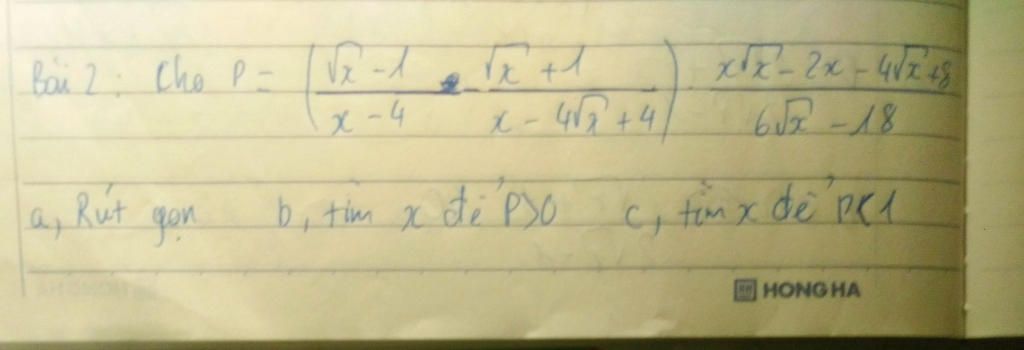 Bài 2: Cho P = ( (√x - 1)/(x - 4) - (√x + 1)/(x - 4√x + 4) ) · (x√x - 2x - 4√x + 8)/(6√x - 18)
a, Rút gọn b, tìm x để P>0 c, tìm x để P<1
HONG HA